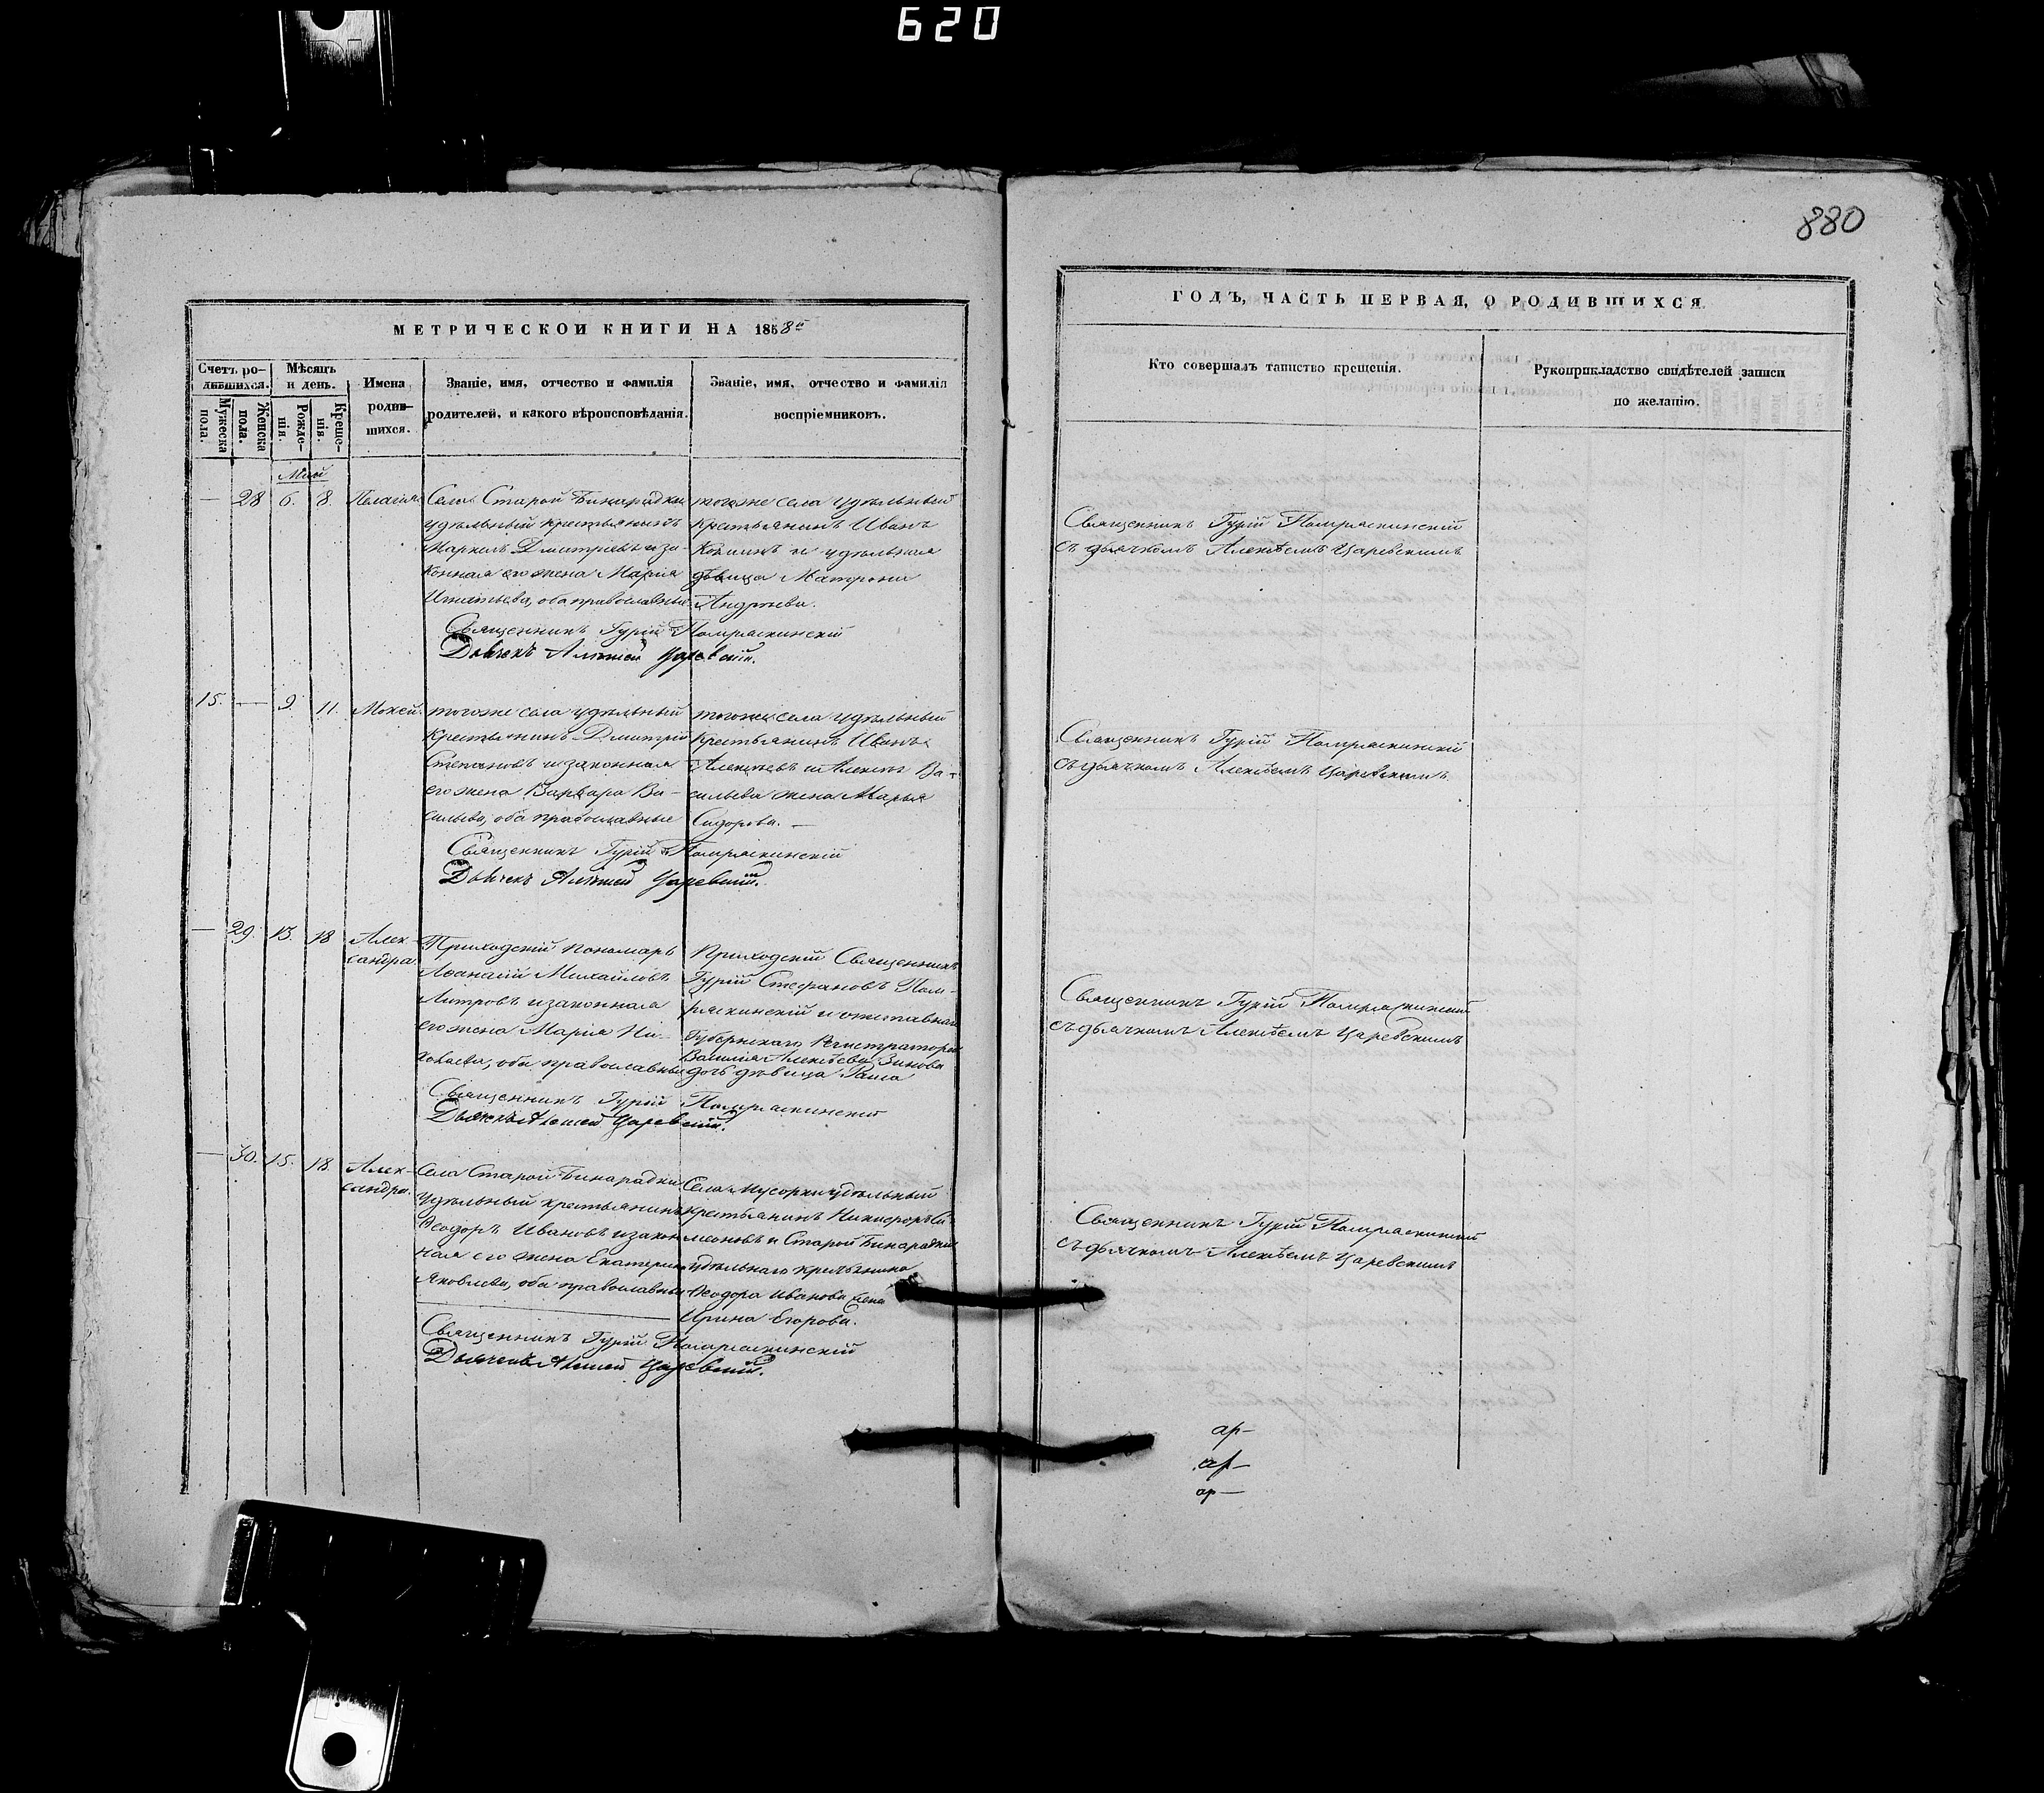 620
880
МЕТРИЧЕСКОЙ КНИГИ НА 1858й
ГОДЪ, ЧАСТЬ ПЕРВАЯ, О РОДИВШИХСЯ
Счетъ ро-
дившихся.
Мужеска
пола.
Женска
пола.
Мѣсяцъ
и день.
Рожде-
нія.
Креще-
нія.
Имена
роди-
шихся.
Званіе, имя, отчество и фамилія
родителей, и какого вѣроисповѣданія.
Званіе, имя, отчество и фамилія
воспріемниковъ.
Кто совершалъ таинство крещенія.
Рукоприкладство свидѣтелей записи
по желанію.
Май
— 28 6. 8. Пелагия
Села Старой Бинарадки
удѣльный крестьянинъ
Маркелъ Дмитріевъ и за-
конная его жена Марія
Игнатьева, оба православные
тогоже села удѣльный
крестьянинъ Иванъ
и удѣльная
дѣвица Матрона
Андреева.
Священникъ Гурій Помряскинскій
Дьячекъ Алексей Царевский.
Священникъ Гурій Помряскинскій
съ дьячкомъ Алексѣемъ Царевскимъ
15. — 9. 11. Мокей
тогоже села удѣльный
крестьянинъ Дмитрій
Степановъ и законная
его жена Варвара Ва-
сильева, оба православные
тогоже села удѣльный
крестьянинъ Иванъ
Алексѣевъ и Алексѣя Ва-
сильева жена Марья
Сидорова. —
Священникъ Гурій Помряскинскій
Дьячекъ Алексей Царевский.
Священникъ Гурій Помряскинскій
съ дьячкомъ Алексѣемъ Царевскимъ
— 29. 13. 18 Алек-
сандра
Приходскій пономарь
Аѳанасій Михайловъ
и законная
его жена Марія Ни-
колаева, оба православные
Приходскій Священникъ
Гурій Стефановъ Пом-
ряскинскій и отставнаго
Губернскаго Регистратора
Василія Алексѣева Зинова
дочь дѣвица Раиса
Священникъ Гурій Помряскинскій
Дьячекъ Алексей Царевский.
Священникъ Гурій Помряскинскій
съ дьячкомъ Алексѣемъ Царевскимъ
— 30. 15. 18. Алек-
сандра.
Села Старой Бинарадки
удѣльный крестьянинъ
Ѳеодоръ Ивановъ и закон-
ная его жена Екатерина
Яковлева, оба православные
Села Мусорки удѣльный
крестьянинъ Никифоръ Си-
меоновъ и Старой Бинарадки
удѣльнаго крестьянина
Ѳеодора Иванова жена
Ирина Егорова.
Священникъ Гурій Помряскинскій
Дьячекъ Алексей Царевский.
Священникъ Гурій Помряскинскій
съ дьячкомъ Алексѣемъ Царевскимъ
ар—
ар—
ар—